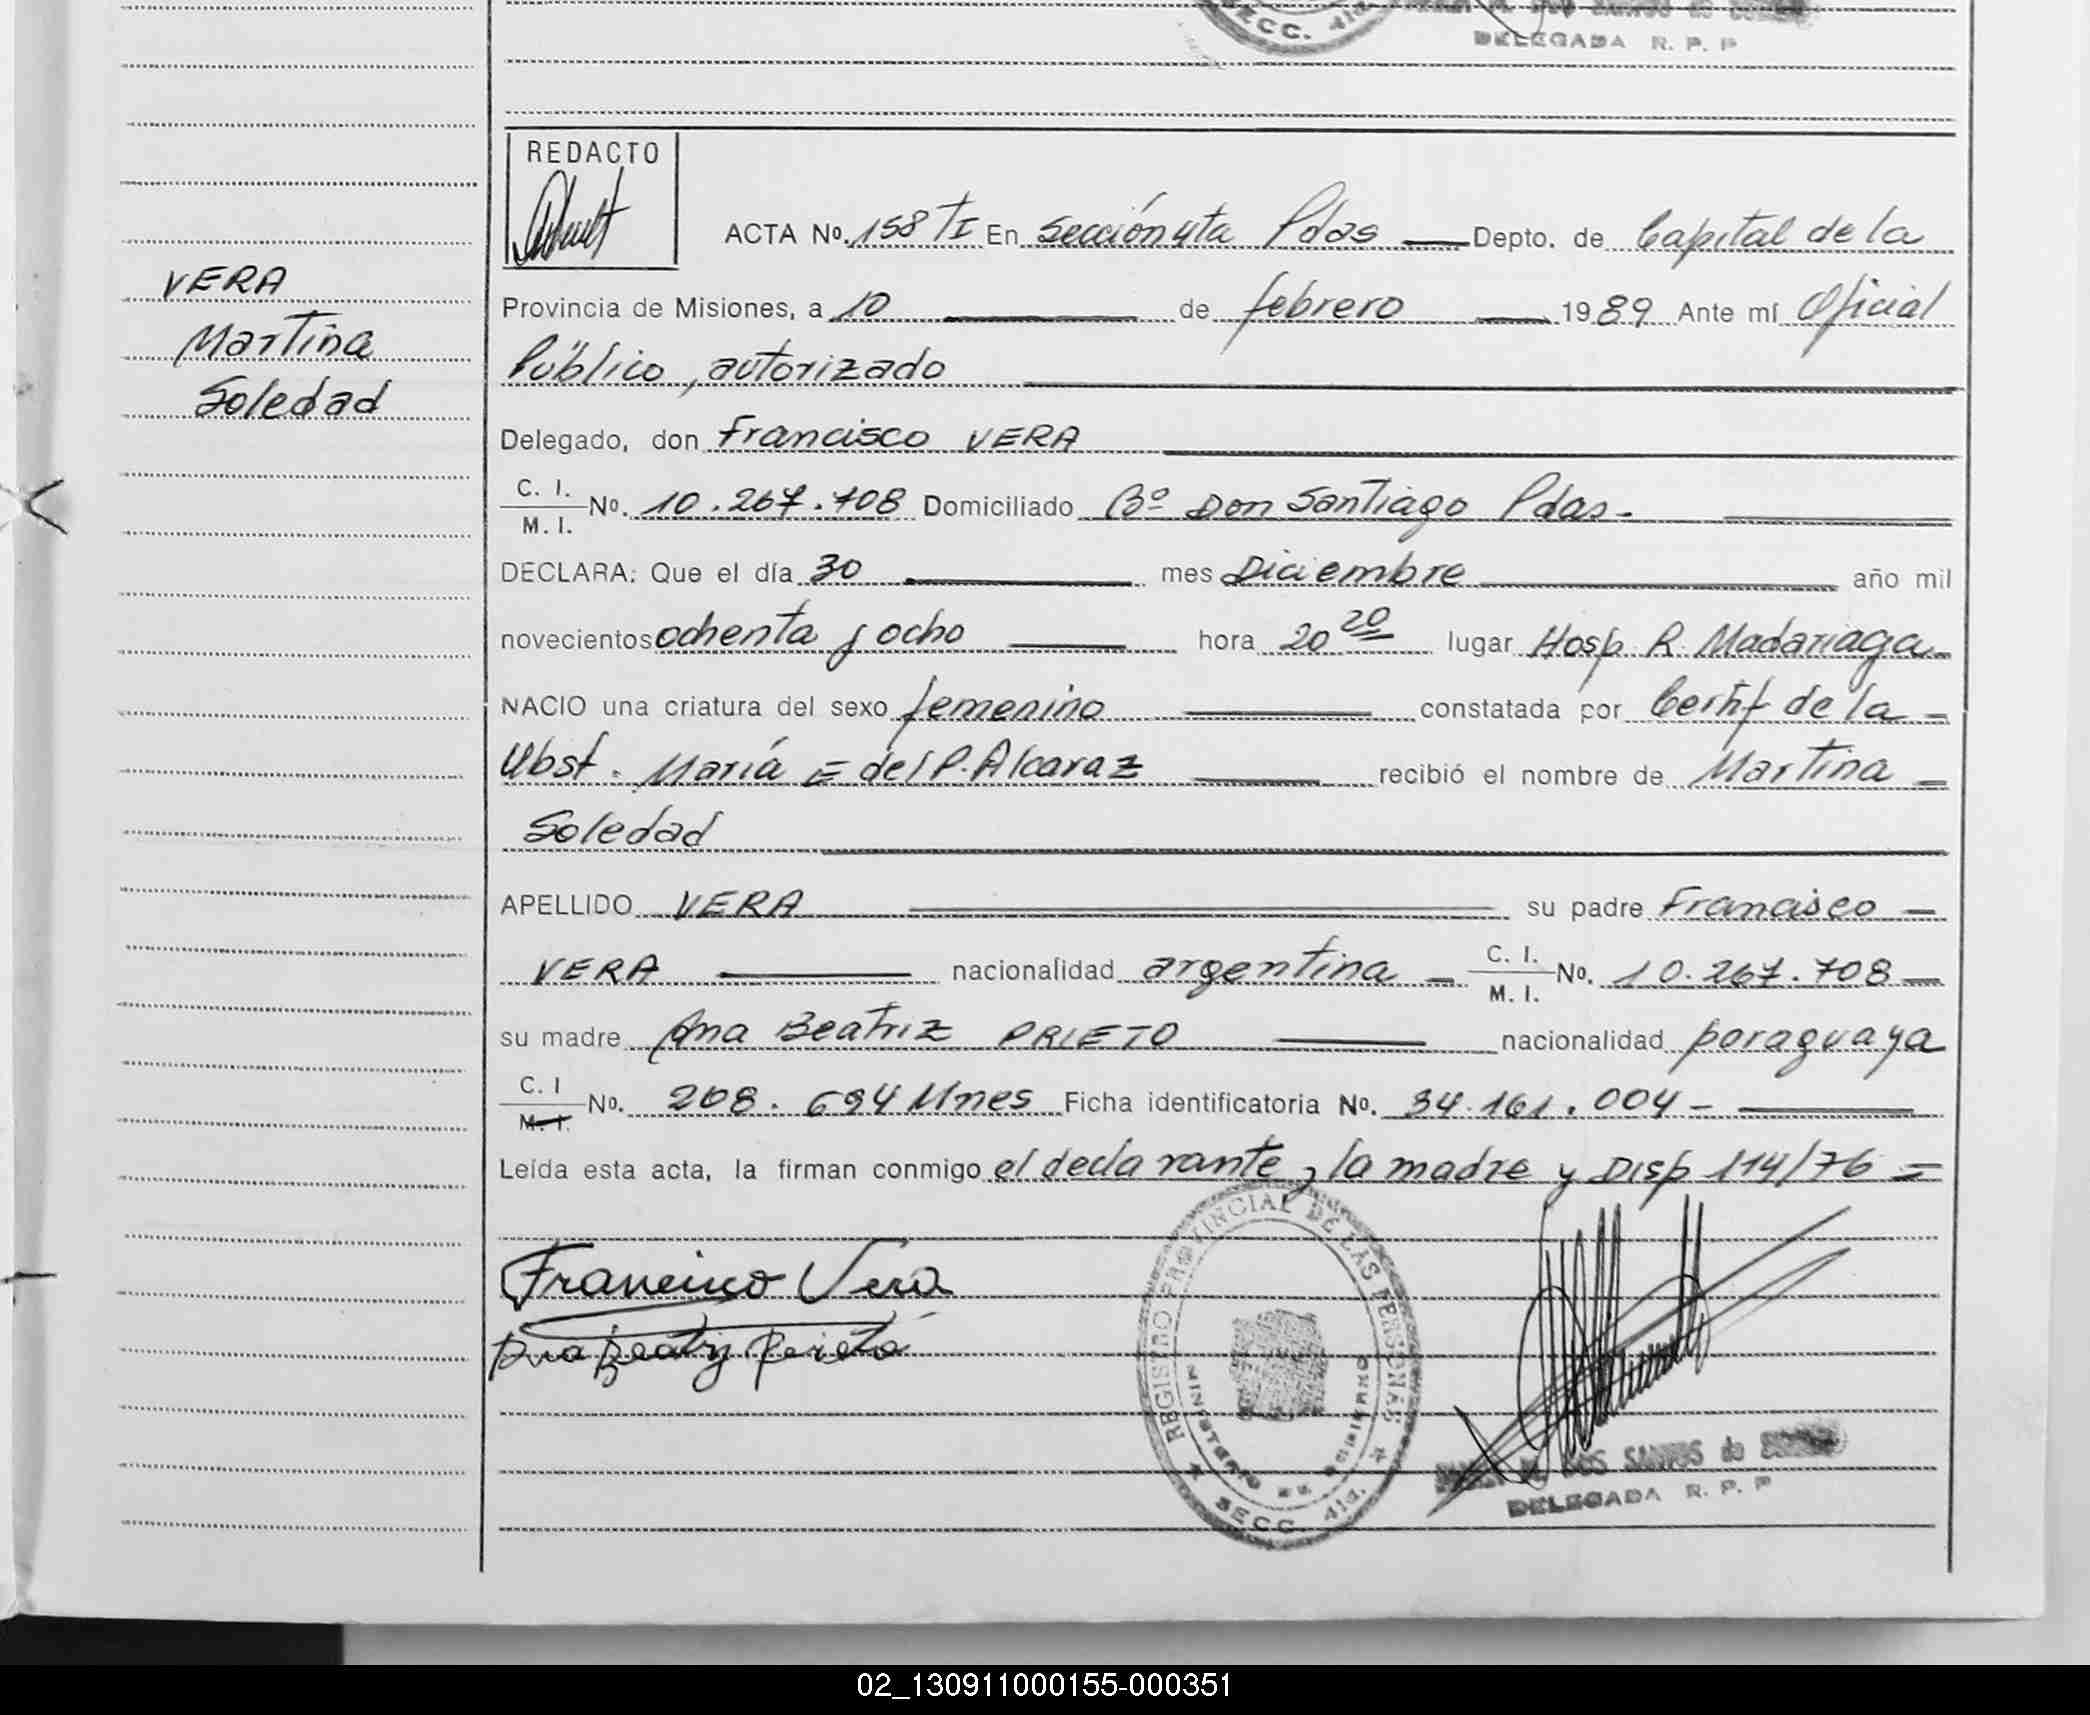 SECC. 4ta.
DELEGADA R. P. P
REDACTO
ACTA Nº. 158 TI En Sección 4ta Pdas Depto. de Capital de la
VERA
Martina
Soledad
Provincia de Misiones, a 10 de febrero 1989 Ante mí Oficial
Público, autorizado
Delegado, don Francisco VERA
C. I.
M. I. Nº. 10.267.708 Domiciliado Bº Don Santiago Pdas.
DECLARA: Que el día 30 mes Diciembre año mil
novecientos ochenta y ocho hora 20 20 lugar Hosp R. Madariaga
NACIO una criatura del sexo femenino constatada por Certif de la
Obst. María E del P. Alcaraz recibió el nombre de Martina
Soledad
APELLIDO VERA su padre Francisco
VERA nacionalidad argentina C. I.
M. I. Nº. 10.267.708
su madre Ana Beatriz PRIETO nacionalidad paraguaya
C. I
M. I. Nº. 208. 694 Mnes Ficha identificatoria Nº. 34.161.004
Leída esta acta, la firman conmigo el declarante, la madre y Disp 114/76
Francisco Vera
Ana Beatriz Prieto
REGISTRO PROVINCIAL DE LAS PERSONAS
MINISTERIO DE GOBIERNO
SECC. 4ta.
DOS SANTOS de
DELEGADA R. P. P
02_130911000155-000351